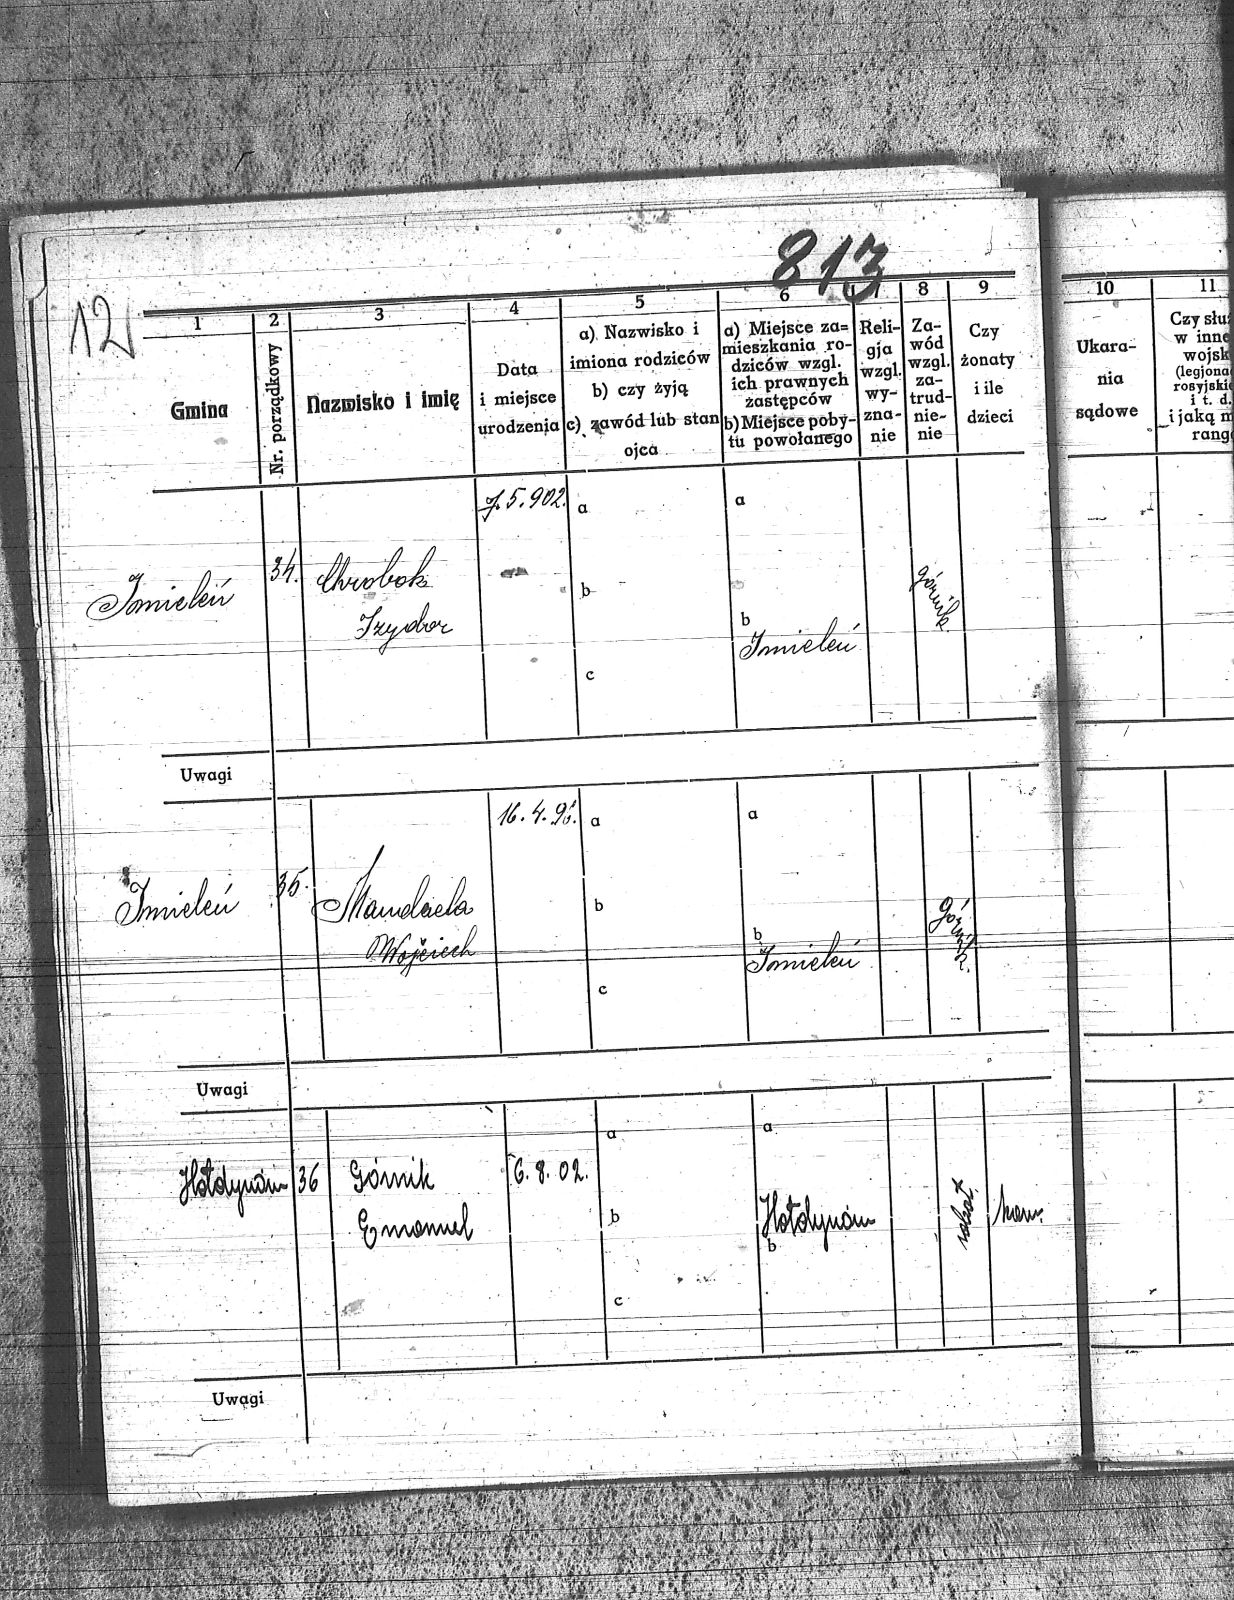 813
12
1 2 3 4 5 6 7 8 9 10 11
Gmina
Nr. porządkowy
Nazwisko i imię
Data
i miejsce
urodzenia
a) Nazwisko i
imiona rodziców
b) czy żyją
c) zawód lub stan
ojca
a) Miejsce za=
mieszkania ro-
dziców wzgl.
ich prawnych
zastępców
b) Miejsce poby-
tu powołanego
Reli-
gja
wzgl.
wy-
zna-
nie
Za-
wód
wzgl.
za-
trud-
nie-
nie
Czy
żonaty
i ile
dzieci
Ukara-
nia
sądowe
Czy słu
w inne
wojsk
(legjona
rosyjskie
i t. d.
i jaką
rang
Imieleń 34. Chrobok
Izydor
7.5.902.
a
b
c
a
b
Imieleń
górnik
Uwagi
Imieleń 35. Mandzela
Wojciech
16.4.98.
a
b
c
a
b
Imieleń
górnik.
Uwagi
Hołdynów 36 Górnik
Emanuel
6.8.02.
a
b
c
a
Hołdynów
b
robot.
kaw.
Uwagi